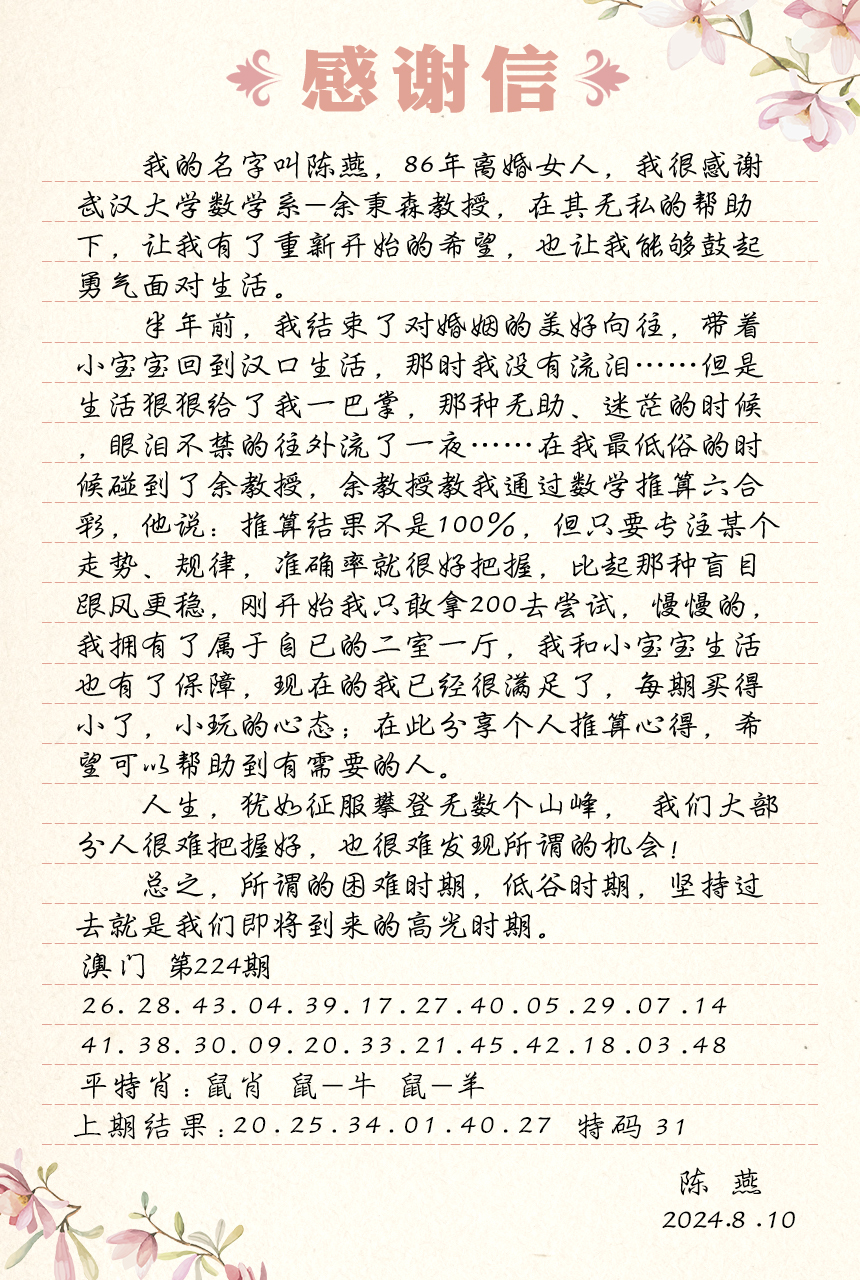 感谢信
我的名字叫陈燕，86年离婚女人，我很感谢
武汉大学数学系—余秉森教授，在其无私的帮助
下，让我有了重新开始的希望，也让我能够鼓起
勇气面对生活。
半年前，我结束了对婚姻的美好向往，带着
小宝宝回到汉口生活，那时我没有流泪……但是
生活狠狠给了我一巴掌，那种无助、迷茫的时候
，眼泪不禁的往外流了一夜……在我最低俗的时
候碰到了余教授，余教授教我通过数学推算六合
彩，他说：推算结果不是100%，但只要专注某个
走势、规律，准确率就很好把握，比起那种盲目
跟风更稳，刚开始我只敢拿200去尝试，慢慢的，
我拥有了属于自已的二室一厅，我和小宝宝生活
也有了保障，现在的我已经很满足了，每期买得
小了，小玩的心态；在此分享个人推算心得，希
望可以帮助到有需要的人。
人生，犹如征服攀登无数个山峰， 我们大部
分人很难把握好，也很难发现所谓的机会！
总之，所谓的困难时期，低谷时期，坚持过
去就是我们即将到来的高光时期。
澳门 第224期
26.28.43.04.39.17.27.40.05.29.07.14
41.38.30.09.20.33.21.45.42.18.03.48
平特肖：鼠肖 鼠—牛 鼠—羊
上期结果：20.25.34.01.40.27 特码 31
陈 燕
2024.8.10